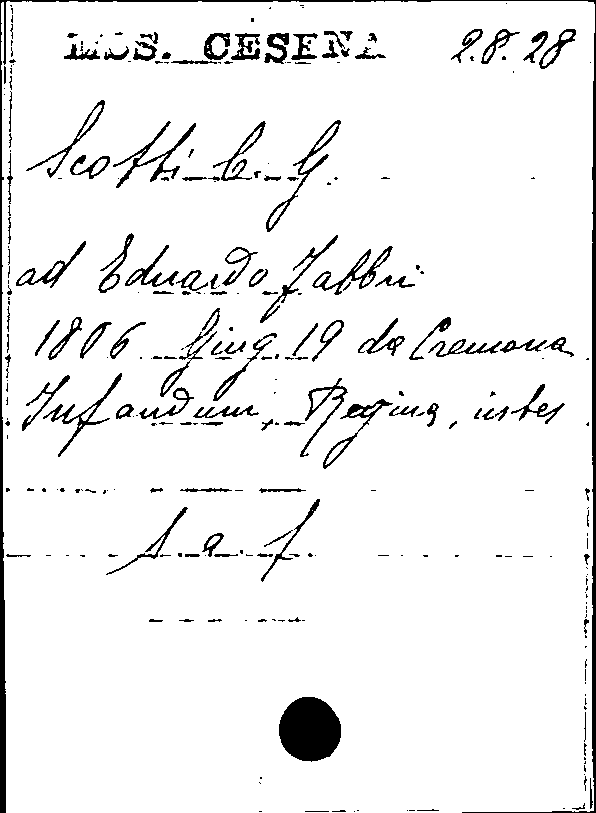 MSS. CESENA 2.8.28
Scotti C. G.
ad Eduardo Fabbri
1806 Giug. 19 da Cremona
Infandum, Regina, iubes
S. a. f.